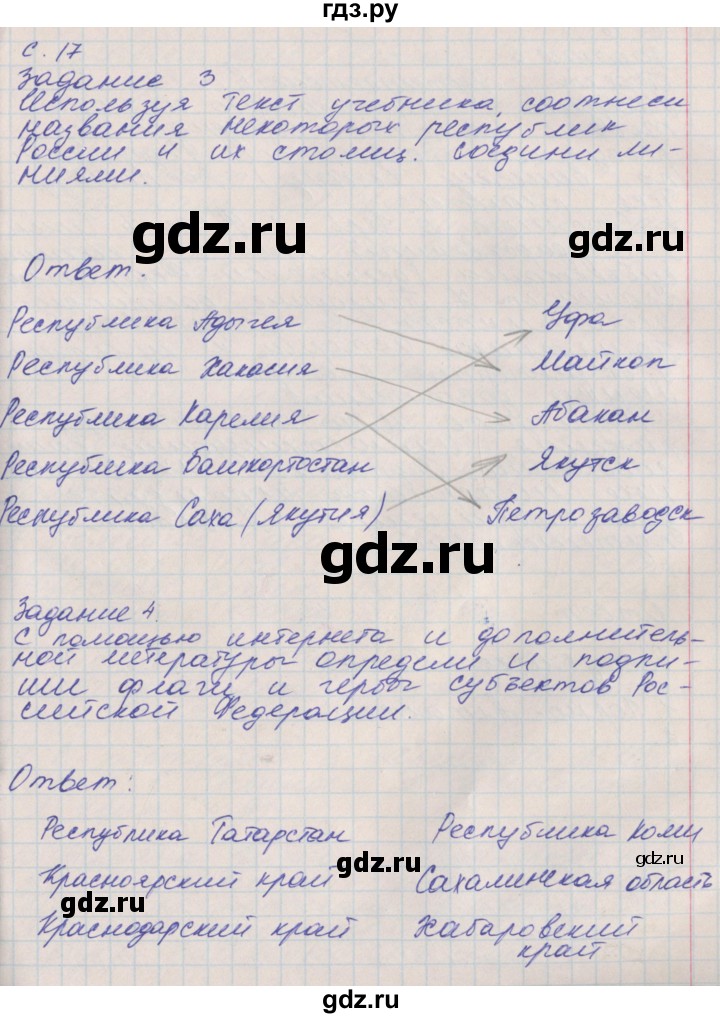 гдз.ру
с. 17
Задание 3
Используя текст учебника, соотнеси
названия некоторых республик
России и их столиц. Соедини ли-
ниями.
gdz.ru
gdz.ru
Ответ:
Республика Адыгея Уфа
Республика Хакасия Майкоп
Республика Карелия Абакан
Республика Башкортостан Якутск
Республика Саха (Якутия) Петрозаводск
gdz.ru
Задание 4.
С помощью интернета и дополнитель-
ной литературы определи и подпи-
ши флаги и гербы субъектов Рос-
сийской Федерации.
Ответ:
Республика Татарстан Республика Коми
gdz.ru
gdz.ru
Красноярский край Сахалинская область
gdz.ru
Краснодарский край Хабаровский
край
gdz.ru
gdz.ru